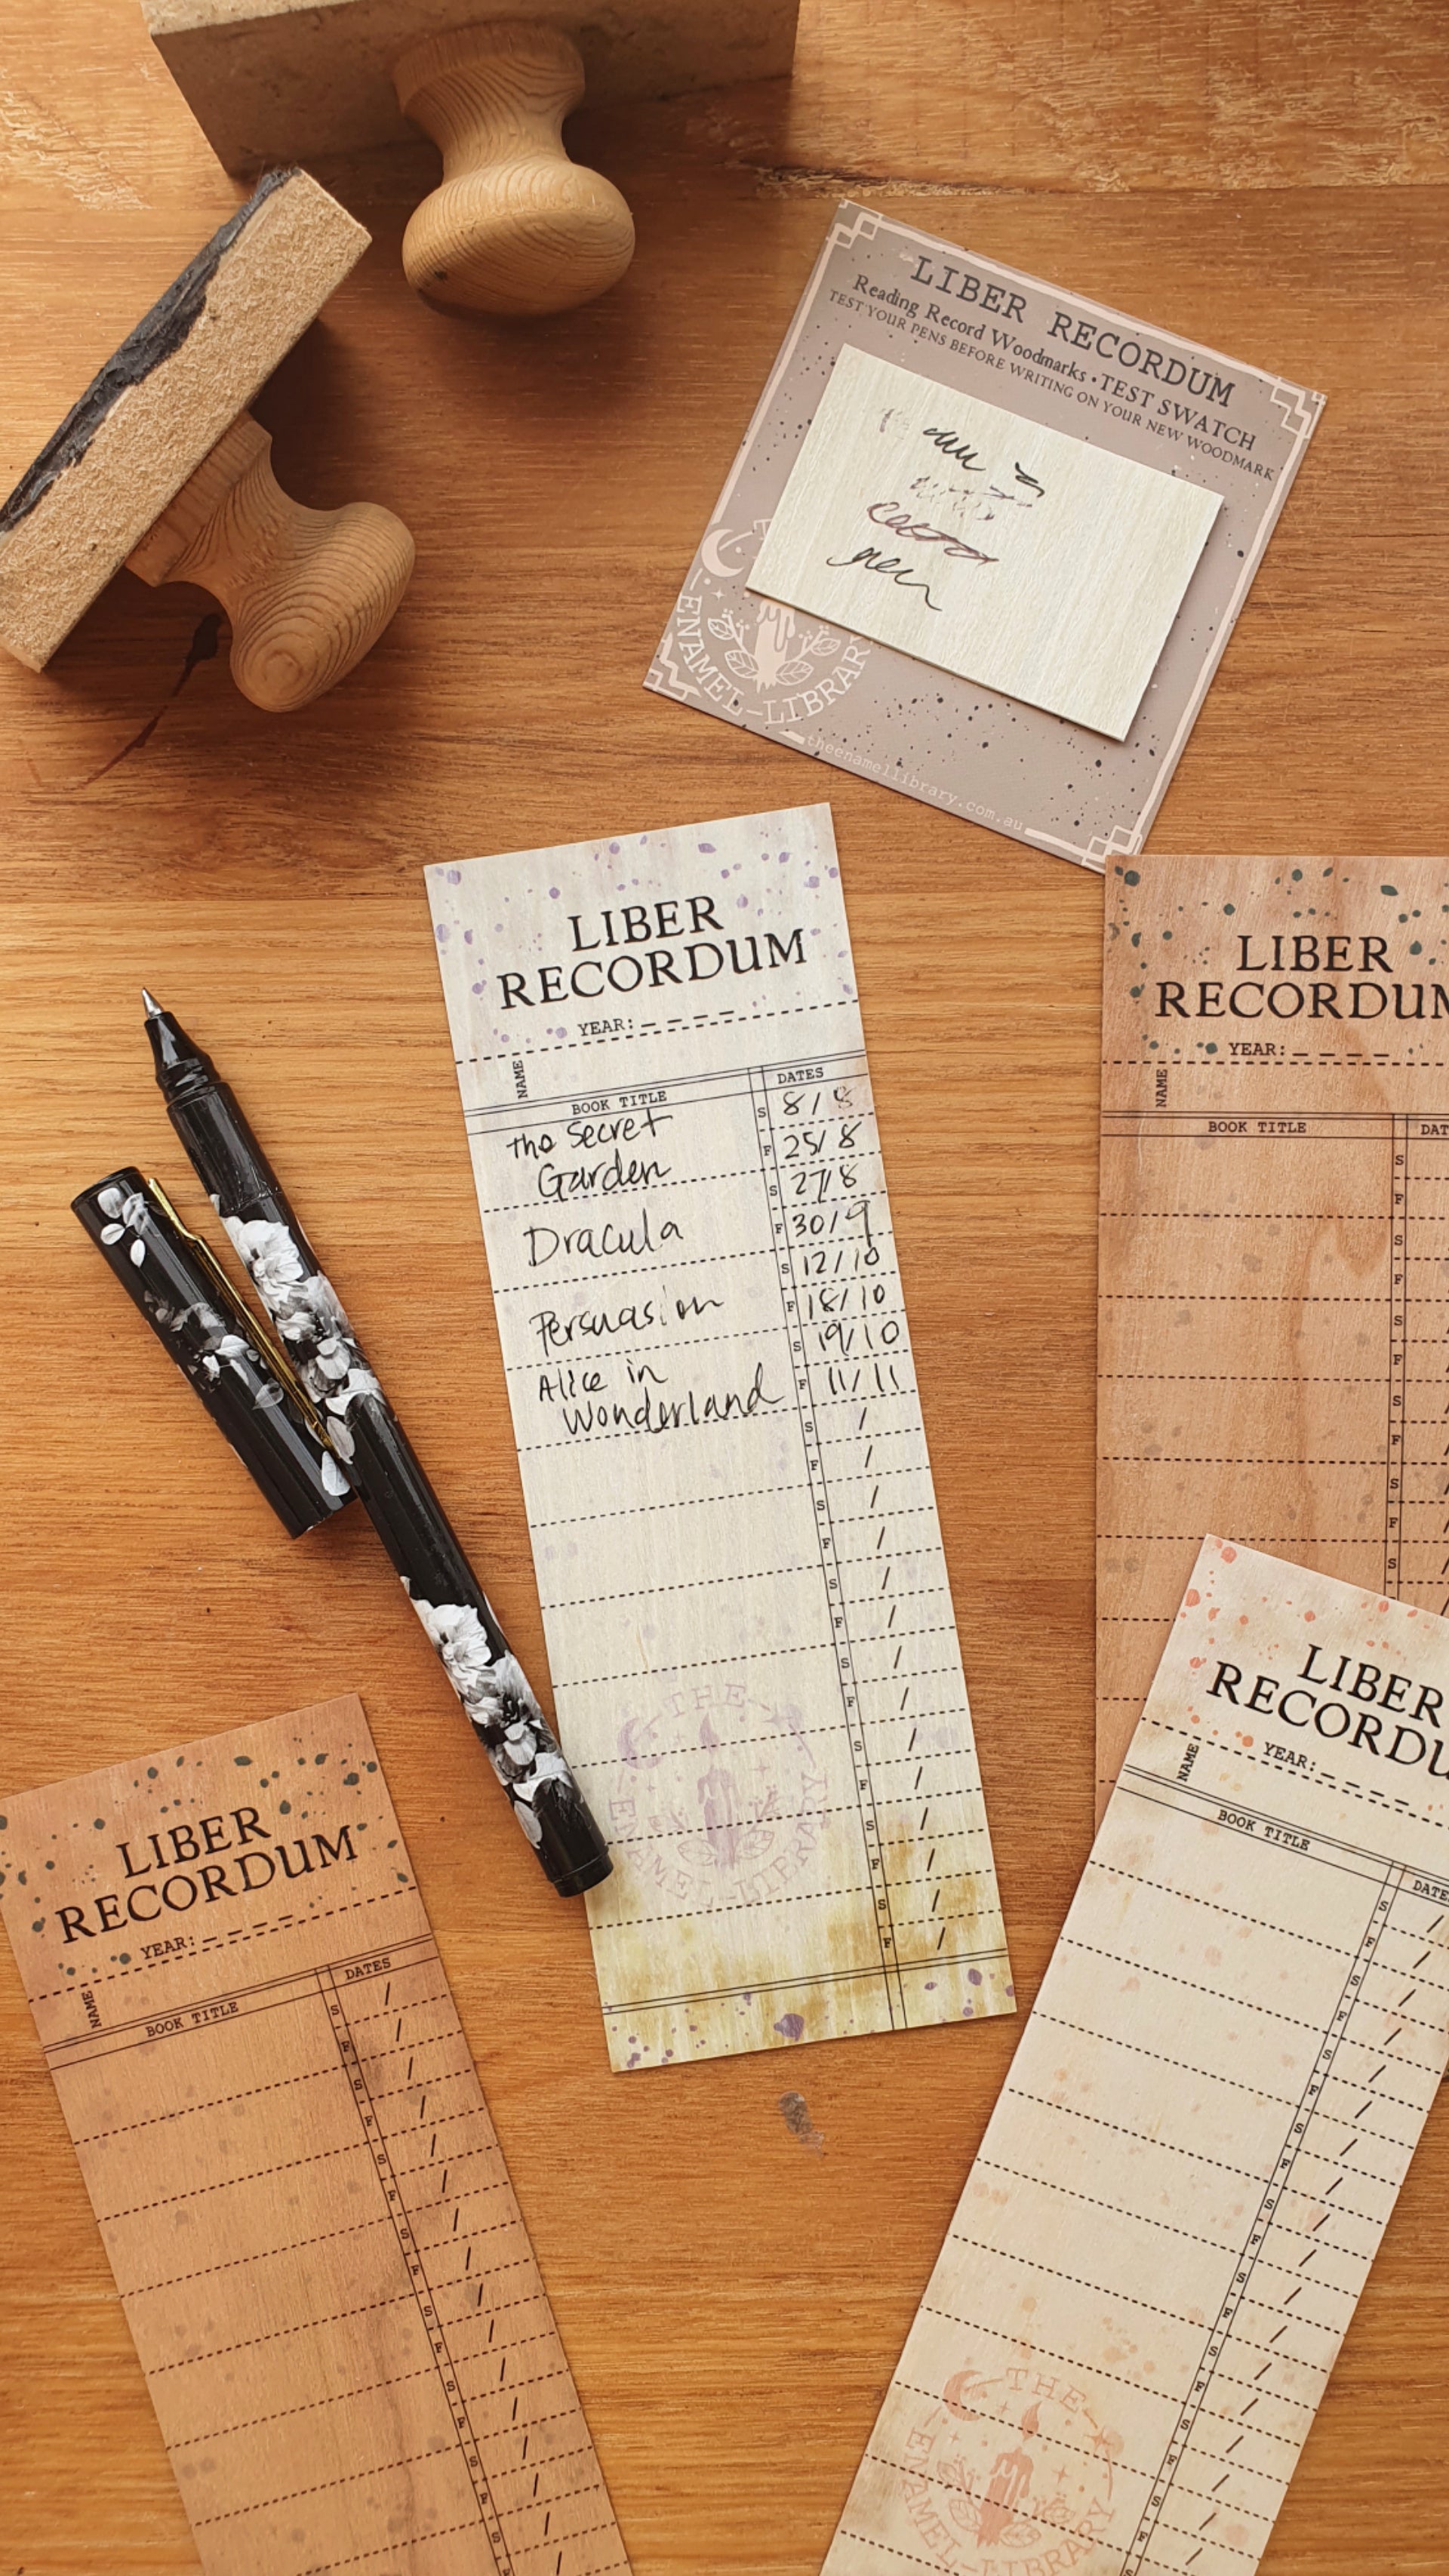 LIBER RECORDUM
Reading Record Woodmarks • TEST SWATCH
TEST YOUR PENS BEFORE WRITING ON YOUR NEW WOODMARK
ENAMEL-LIBRARY
theenamellibrary.com.au
LIBER
RECORDUM
YEAR:
NAME
BOOK TITLE
DATES
The Secret
Garden
S 8/8
F 25/8
Dracula
S 27/8
F 30/9
Persuasion
S 12/10
F 18/10
Alice in
Wonderland
S 19/10
F 11/11
S /
F /
S /
F /
S /
F /
S /
F /
S /
F /
S /
F /
S /
F /
THE
ENAMEL-LIBRARY
LIBER
RECORDUM
YEAR:
NAME
BOOK TITLE
DAT
S
F
S
F
S
F
S
F
S
F
S
LIBER
RECORDU
YEAR:
NAME
BOOK TITLE
DATE
S /
F /
S /
F /
S /
F /
S /
F /
S /
F /
S /
F /
S /
F /
S /
F /
S /
THE
ENAMEL-LIBRARY
LIBER
RECORDUM
YEAR:
NAME
BOOK TITLE
DATES
S /
F /
S /
F /
S /
F /
S /
F /
S /
F /
S /
F /
S /
F /
S /